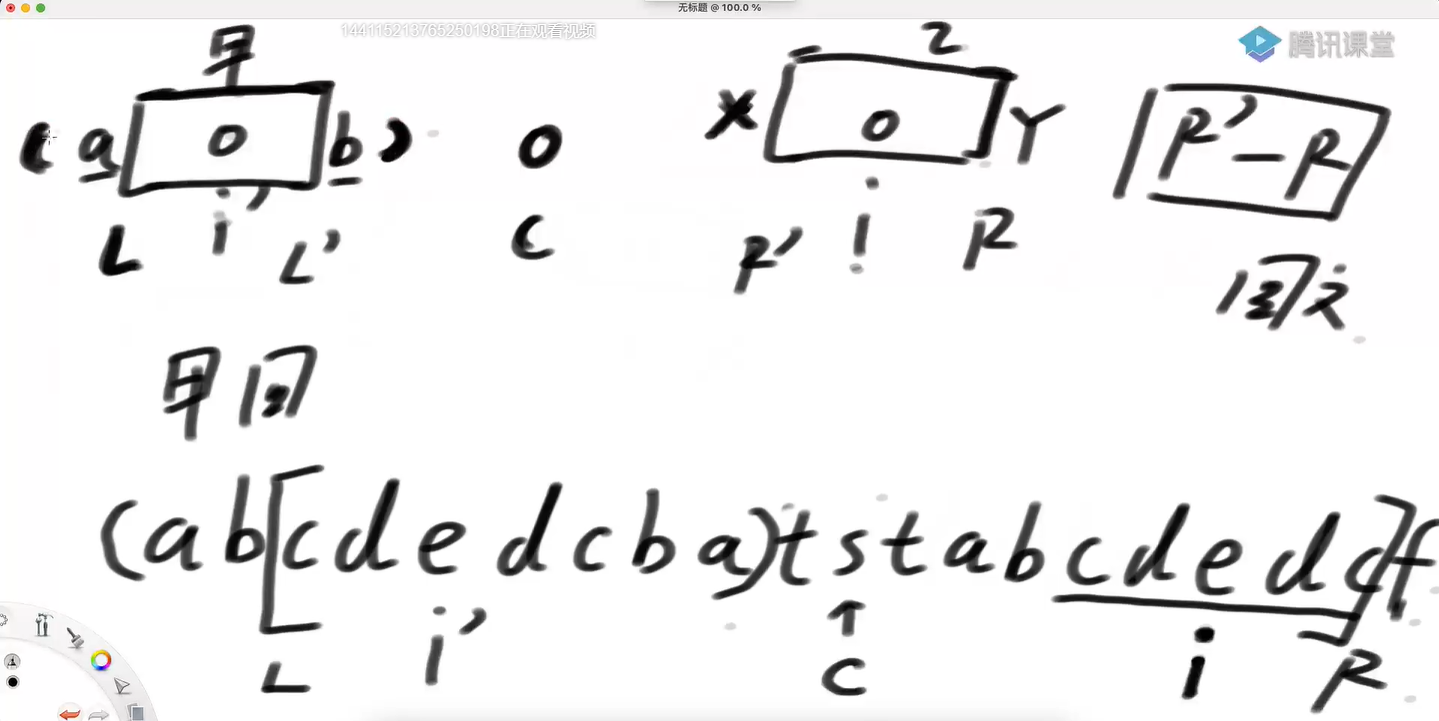 无标题 @ 100.0 %
144115213765250198正在观看视频
腾讯课堂
甲 Z
( a O b ) O X O Y R' - R
i' i
L L' C R' R
甲回
(ab[cdedcba)tstabcdedc]f
i' ↑ i
L C R